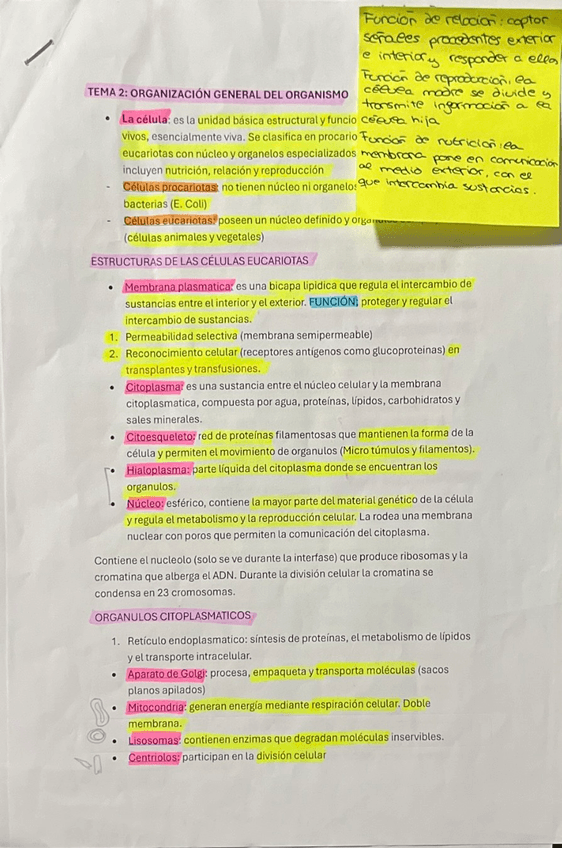 Función de relación: captor
señales procedentes exterior
e interior y responder a ellas
Función de reproducción, la
célula madre se divide y
transmite información a la
célula hija
Función de nutrición, la
membrana pone en comunicación
al medio exterior, con el
que intercambia sustancias.
TEMA 2: ORGANIZACIÓN GENERAL DEL ORGANISMO
• La célula: es la unidad básica estructural y funcio
vivos, esencialmente viva. Se clasifica en procario
eucariotas con núcleo y organelos especializados
incluyen nutrición, relación y reproducción
- Células procariotas: no tienen núcleo ni organelos
bacterias (E. Coli)
- Células eucariotas: poseen un núcleo definido y
(células animales y vegetales)
ESTRUCTURAS DE LAS CÉLULAS EUCARIOTAS
• Membrana plasmatica: es una bicapa lipidica que regula el intercambio de
sustancias entre el interior y el exterior. FUNCIÓN; proteger y regular el
intercambio de sustancias.
1. Permeabilidad selectiva (membrana semipermeable)
2. Reconocimiento celular (receptores antígenos como glucoproteinas) en
transplantes y transfusiones.
• Citoplasma: es una sustancia entre el núcleo celular y la membrana
citoplasmatica, compuesta por agua, proteínas, lípidos, carbohidratos y
sales minerales.
• Citoesqueleto: red de proteínas filamentosas que mantienen la forma de la
célula y permiten el movimiento de organulos (Micro túmulos y filamentos).
• Hialoplasma: parte líquida del citoplasma donde se encuentran los
organulos.
• Núcleo: esférico, contiene la mayor parte del material genético de la célula
y regula el metabolismo y la reproducción celular. La rodea una membrana
nuclear con poros que permiten la comunicación del citoplasma.
Contiene el nucleolo (solo se ve durante la interfase) que produce ribosomas y la
cromatina que alberga el ADN. Durante la división celular la cromatina se
condensa en 23 cromosomas.
ORGANULOS CITOPLASMATICOS
1. Retículo endoplasmatico: síntesis de proteínas, el metabolismo de lípidos
y el transporte intracelular.
• Aparato de Golgi: procesa, empaqueta y transporta moléculas (sacos
planos apilados)
• Mitocondria: generan energía mediante respiración celular. Doble
membrana.
• Lisosomas: contienen enzimas que degradan moléculas inservibles.
• Centriolos; participan en la división celular